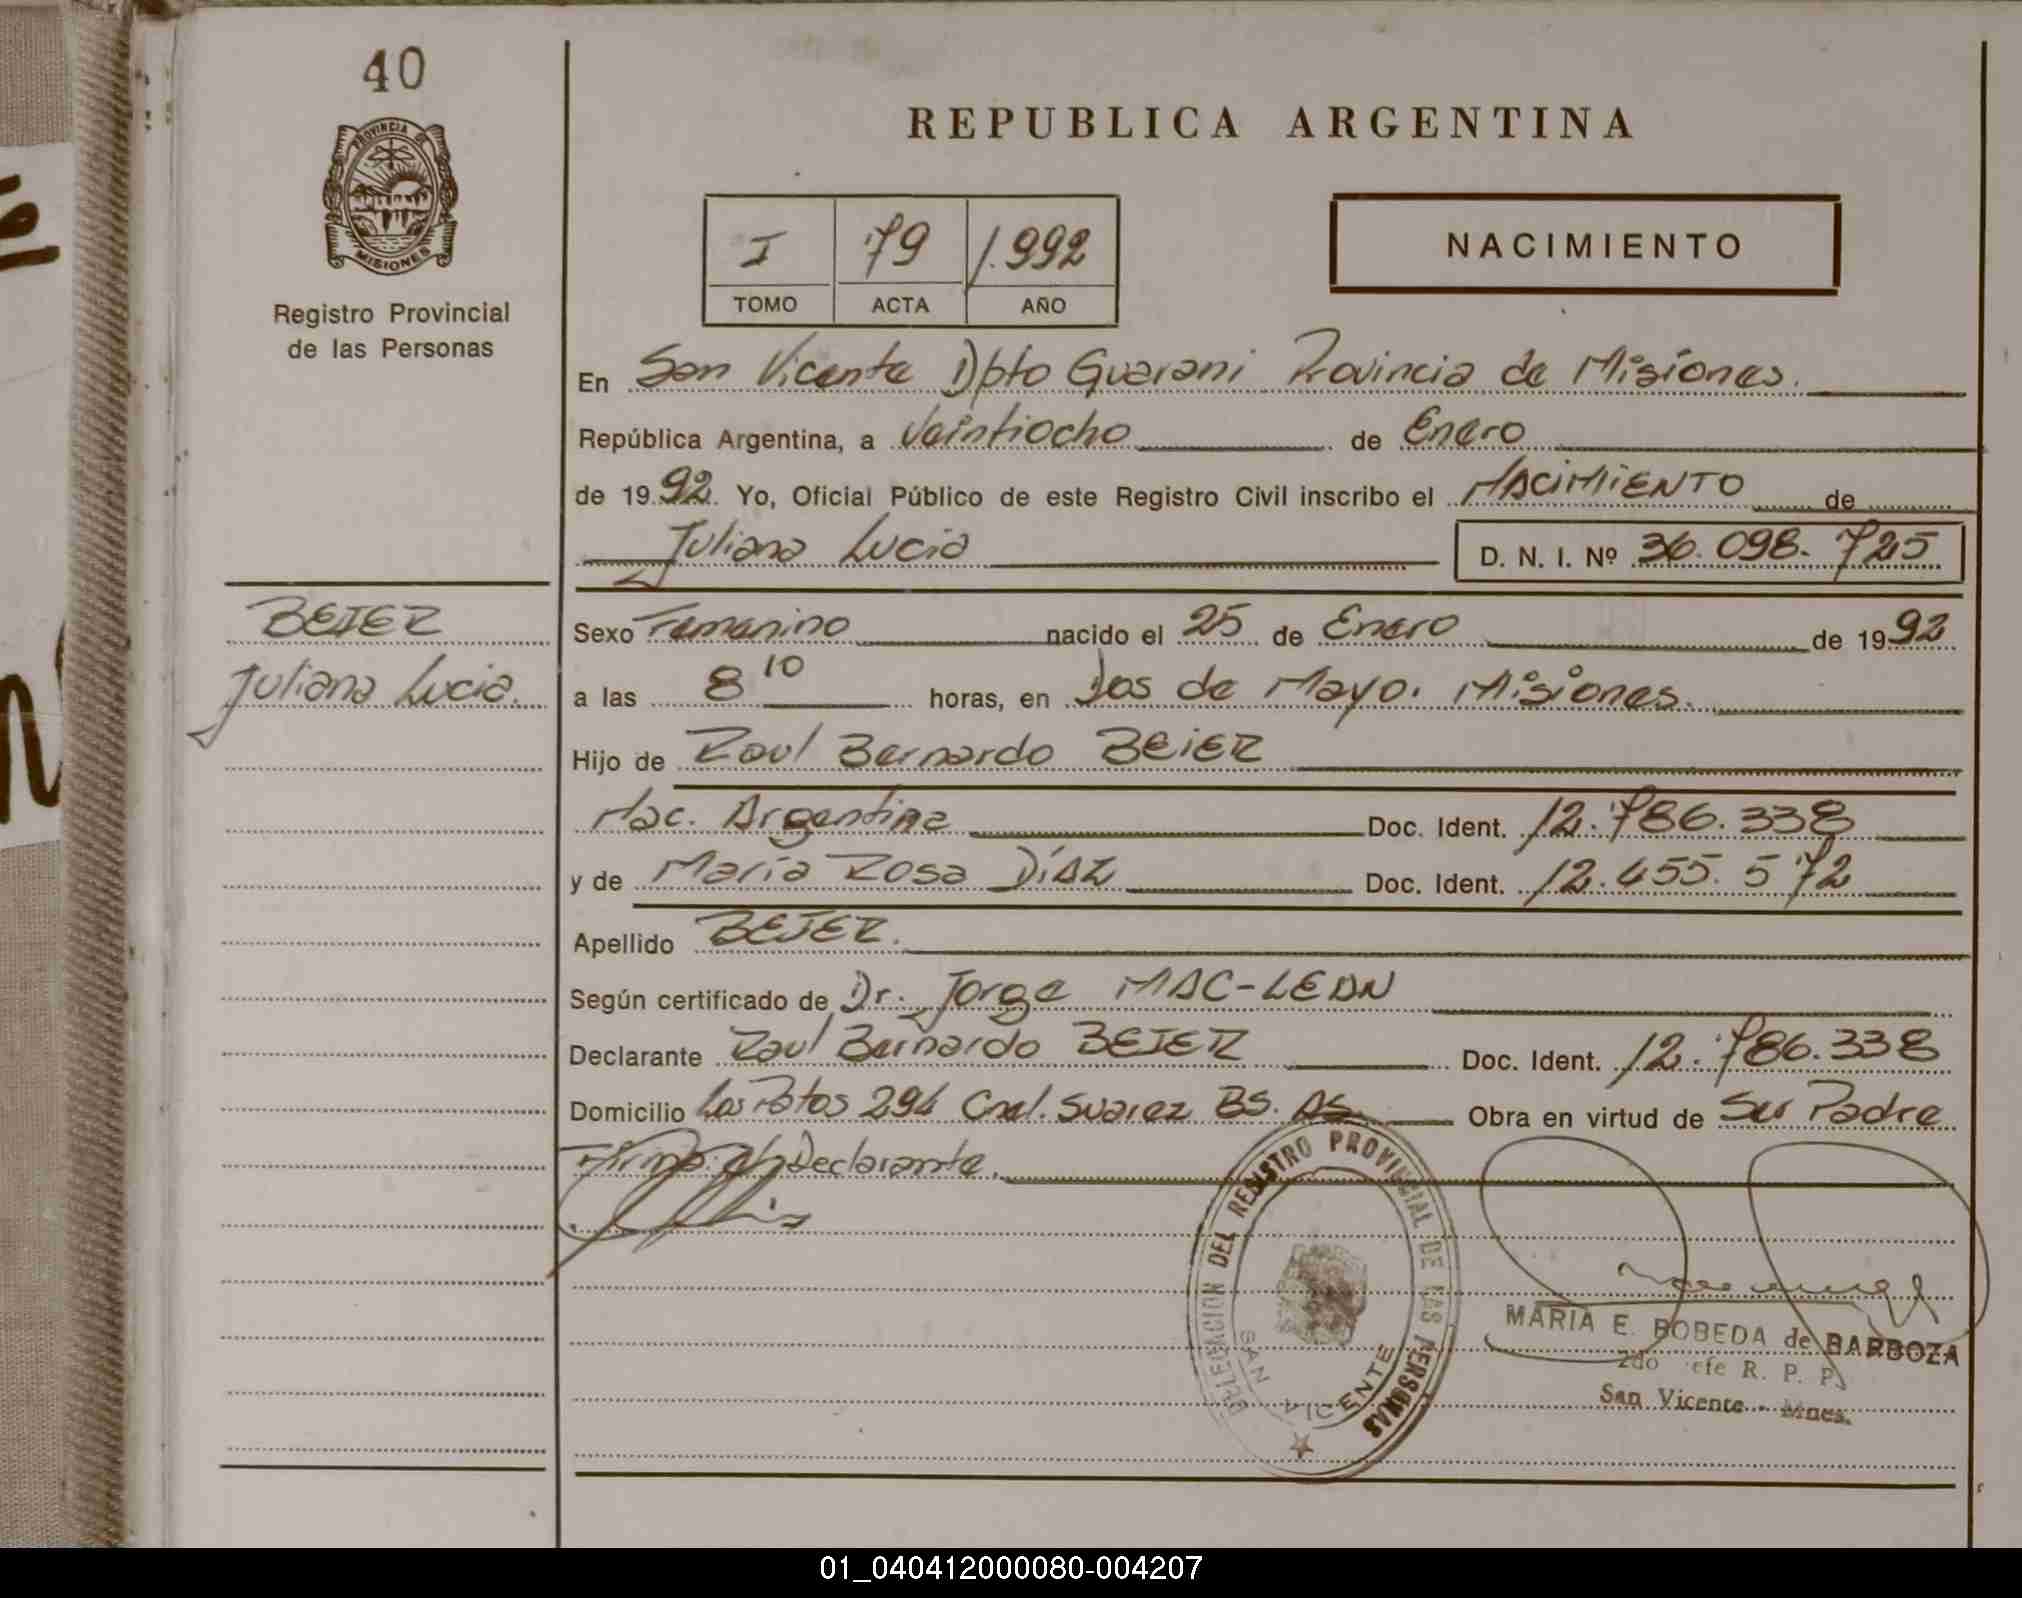 40
PROVINCIA DE
MISIONES
Registro Provincial
de las Personas
REPUBLICA ARGENTINA
I 79 1.992
TOMO ACTA AÑO
NACIMIENTO
En San Vicente Dpto Guarani Provincia de Misiones.
República Argentina, a Veintiocho de Enero
de 1992. Yo, Oficial Público de este Registro Civil inscribo el NACIMIENTO de
Juliana Lucia D. N. I. Nº 36.098.725
BEIER
Juliana Lucia.
Sexo Femenino nacido el 25 de Enero de 1992
a las 8 10 horas, en Dos de Mayo. Misiones.
Hijo de Raul Bernardo BEIER
Nac. Argentina Doc. Ident. 12.786.338
y de Maria Rosa DiAZ Doc. Ident. 12.455.572
Apellido BEIER.
Según certificado de Dr. Jorge MAC-LEAN
Declarante Raul Bernardo BEIER Doc. Ident. 12.786.338
Domicilio Los Patos 294 Cnel. Suarez BS. AS. Obra en virtud de Ser Padre
Firma del Declarante.
DELEGACION DEL REGISTRO PROVINCIAL DE LAS PERSONAS
SAN VICENTE
MARIA E. BOBEDA de BARBOZA
2do Jefe R. P. P.
San Vicente - Mnes.
01_040412000080-004207